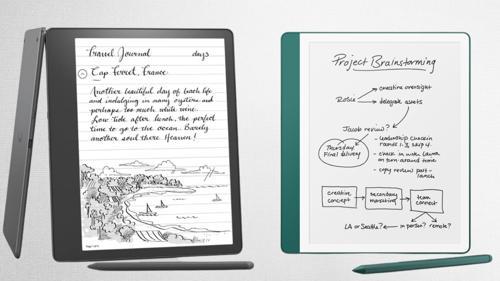 Travel Journal day 3
Cap Ferret, France
Another beautiful day of beach life
and indulging in many oysters and
perhaps too much white wine.
Low Tide after lunch, the perfect
time to go to the ocean. Barely
another soul there. Heaven!
Page 1 of 2
Project Brainstorming
creative oversight
Roles
delegate assets
Jacob review?
Thursday
Final delivery
- leadership check in
rounds 1, 3
- check in with
on turn-around time
- copy review post-
launch
creative
concept
secondary
marketing
team
connect
LA or Seattle?
in person? remote?